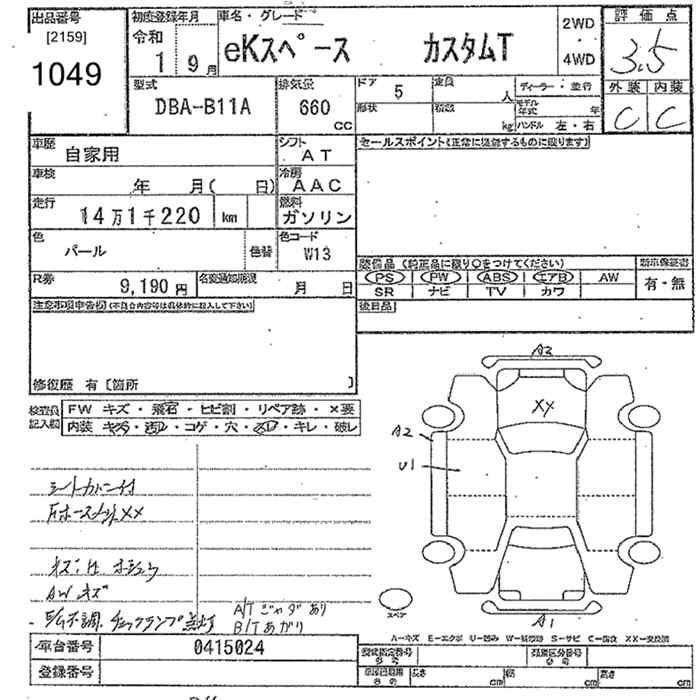 出品番号 初度登録年月 車名・グレード 2WD 評価点
[2159] 令和
1049 1 9月 eKスペース カスタムT ・ 4WD 3.5
型式 排気量 ドア 5 定員 人 ディーラー・並行 外装 内装
DBA-B11A 660 cc 形状 積載 kg モデル年式 年 C C
ハンドル 左・右
車歴 自家用 シフト AT セールスポイント(正常に機能するものに限ります)
車検 年 月( 日) 冷房 AAC
走行 14万1千220 km 燃料 ガソリン
色 パール 色替 色コード W13
装備品 (純正品に限り○をつけてください) 新車保証書
R券 9,190円 名変通知期限 月 日 PS PW ABS エアB AW 有・無
SR ナビ TV カワ
注意事項申告欄(不具合内容等は具体的に記入して下さい) 後日品
修復歴 有 [箇所 ]
検査員記入欄 FW キズ・飛石・ヒビ割・リペア跡・×要
内装 キズ・汚れ・コゲ・穴・スレ・キレ・破レ
A2
XX
A2
U1
シートカバー付
AWキズ
チェックランプ点灯
A/Tジャダあり
B/Tあがり
スペア
A1
A-キズ E-エクボ U-凹み W-補修跡 S-サビ C-腐食 XX-交換済
車台番号 0415024 型式指定番号 類別区分番号
登録番号 長さ cm 幅 cm 高さ cm